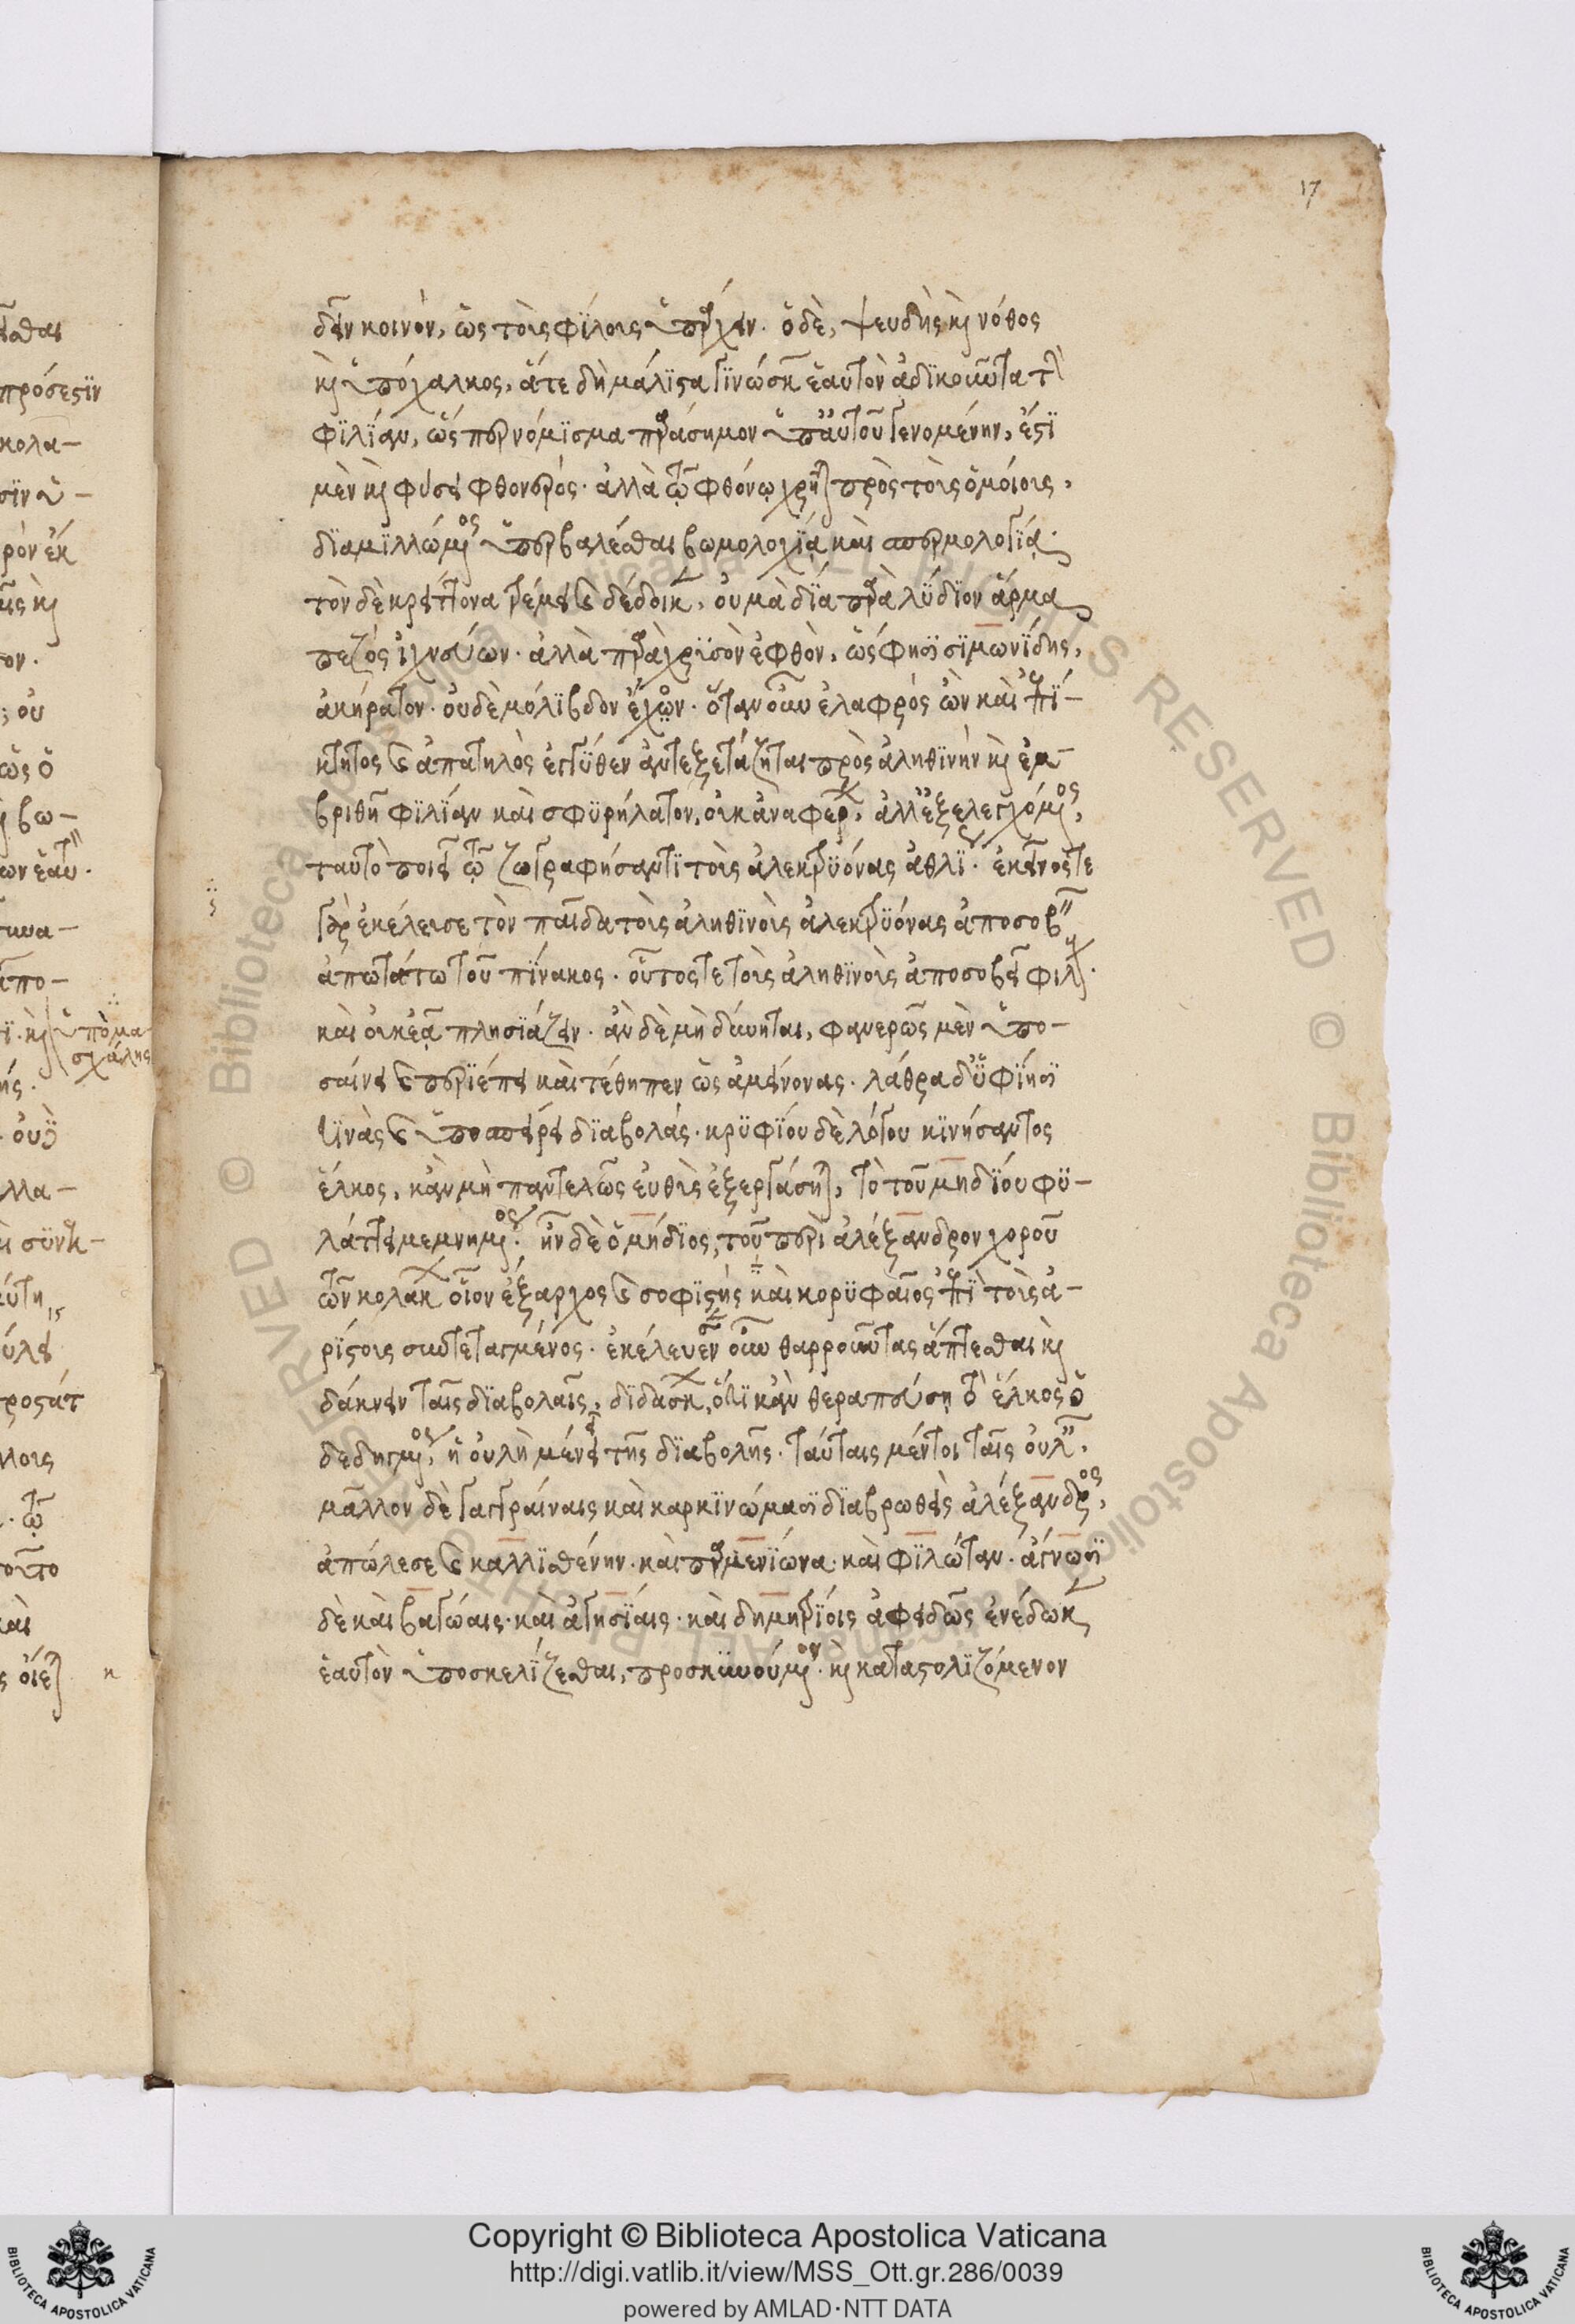 17
δεῖν κοινὸν, ὡς τοῖς φίλοις ὑπάρχειν. ὁ δὲ, ψευδὴς καὶ νόθος
καὶ ὑπόχαλκος, ἅτε δὴ μάλϊστα γϊνώσκων ἑαυτὸν ἀδϊκοῦντα τὴν
φϊλϊαν, ὥσπερ νόμϊσμα παράσημον ὑπ' αὐτοῦ γενομένην, ἐστὶ
μὲν καὶ φύσει φθονερός· ἀλλὰ τῷ φθόνῳ χρῆται πρὸς τοὺς ὁμοίους,
δϊαμϊλλώμενος ὑπερβαλέσθαι βωμολοχϊᾳ καὶ σπερμολογϊᾳ·
τὸν δὲ κρείττονα τρέμει καὶ δέδοικεν, οὐ μὰ δϊα παρὰ λύδϊον ἅρμα
πεζὸς ἰχνεύων· ἀλλὰ παρὰ χρϋσὸν ἑφθὸν, ὥς φησϊ σϊμωνϊδης,
ἀκήρατον· οὐδὲ μόλϊβδον ἔχων· ὅταν οὖν ἐλαφρὸς ὢν καὶ ἐπϊ-
κτητος καὶ ἀπατηλὸς ἐγγύθεν ἀντεξετάζηται πρὸς ἀληθϊνὴν καὶ ἐμ-
βριθῆ φϊλϊαν καὶ σφϋρήλατον, οὐκ ἀναφέρων, ἀλλ' ἐξελεγχόμενος,
ταυτὸ ποιεῖ τῷ ζωγραφήσαντϊ τοὺς ἀλεκτρϋόνας ἀθλϊως· ἐκεῖνός τε
γὰρ ἐκέλευσε τὸν παῖδα τοὺς ἀληθϊνοὺς ἀλεκτρϋόνας ἀποσοβεῖν
ἀπωτάτω τοῦ πϊνακος· οὗτός τε τοὺς ἀληθϊνοὺς ἀποσοβεῖ φίλους·
καὶ οὐκ ἐᾷ πλησϊάζειν· ἂν δὲ μὴ δύνηται, φανερῶς μὲν ὑπο-
σαίνει καὶ περϊέπει καὶ τέθηπεν ὡς ἀμείνονας· λάθρα δ' ὑφϊησϊ
τϊνὰς καὶ ὑποσπείρει δϊαβολάς· κρϋφϊου δὲ λόγου κϊνήσαντος
ἕλκος, κἂν μὴ παντελῶς εὐθὺς ἐξεργάσηται, τὸ τοῦ μηδϊου φϋ-
λάττει μεμνημένος· ἦν δὲ ὁ μήδϊος, τοῦ περὶ ἀλέξανδρον χοροῦ
τῶν κολάκων οἷον ἔξαρχος καὶ σοφϊστὴς καὶ κορϋφαῖος ἐπὶ τοὺς ἀ-
ρϊστους συντεταγμένος· ἐκέλευεν οὖν θαρροῦντας ἅπτεσθαι καὶ
δάκνειν ταῖς δϊαβολαῖς, δϊδάσκων, ὅτϊ κἂν θεραπεύσῃ τὸ ἕλκος ὁ
δεδηγμένος, ἡ οὐλὴ μένει τῆς δϊαβολῆς· ταύταις μέντοι ταῖς οὐλαῖς,
μᾶλλον δὲ γαγγραίναις καὶ καρκϊνώμασϊ δϊαβρωθεὶς ἀλέξανδρος,
ἀπώλεσε καὶ καλλϊσθένην· καὶ παρμενϊωνα· καὶ φϊλώταν· ἅγνωσϊ
δὲ καὶ βαγώαις· καὶ ἀγησϊαις· καὶ δημητρϊοις ἀφειδῶς ἐνέδωκεν
ἑαυτὸν ὑποσκελϊζεσθαι, προσκϋνούμενον· καὶ καταστολϊζόμενον
Copyright © Biblioteca Apostolica Vaticana
http://digi.vatlib.it/view/MSS_Ott.gr.286/0039
powered by AMLAD·NTT DATA